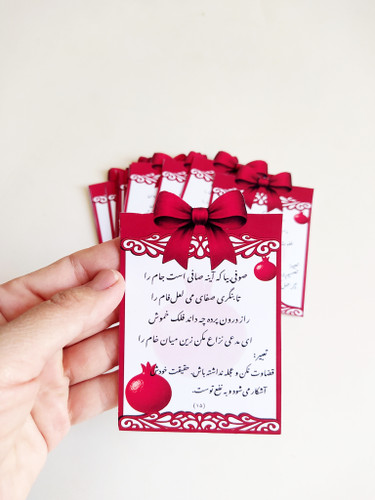 صوفی بیا که آینه صافی است جام را
تا بنگری صفای می لعل فام را
راز درون پرده چه داند فلک خموش
ای مدعی نزاع مکن زین میان خام را
تعبیر:
قضاوت نکن و عجله نداشته باش. حقیقت خودش
آشکار می شود و به نفع توست.
(۷۵)